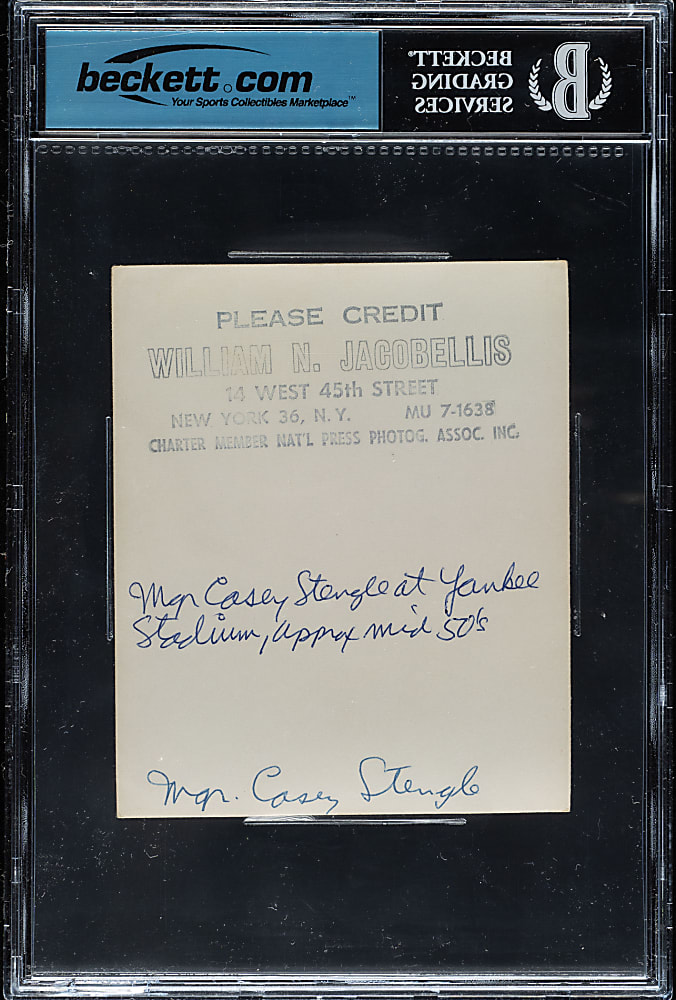 beckett.com
Your Sports Collectibles Marketplace™
BECKETT®
GRADING
SERVICES
B
PLEASE CREDIT
WILLIAM N. JACOBELLIS
14 WEST 45th STREET
NEW YORK 36, N.Y. MU 7-1638
CHARTER MEMBER NAT'L PRESS PHOTOG. ASSOC. INC.
Mgr Casey Stengle at Yankee
Stadium, approx mid 50's
Mgr. Casey Stengle